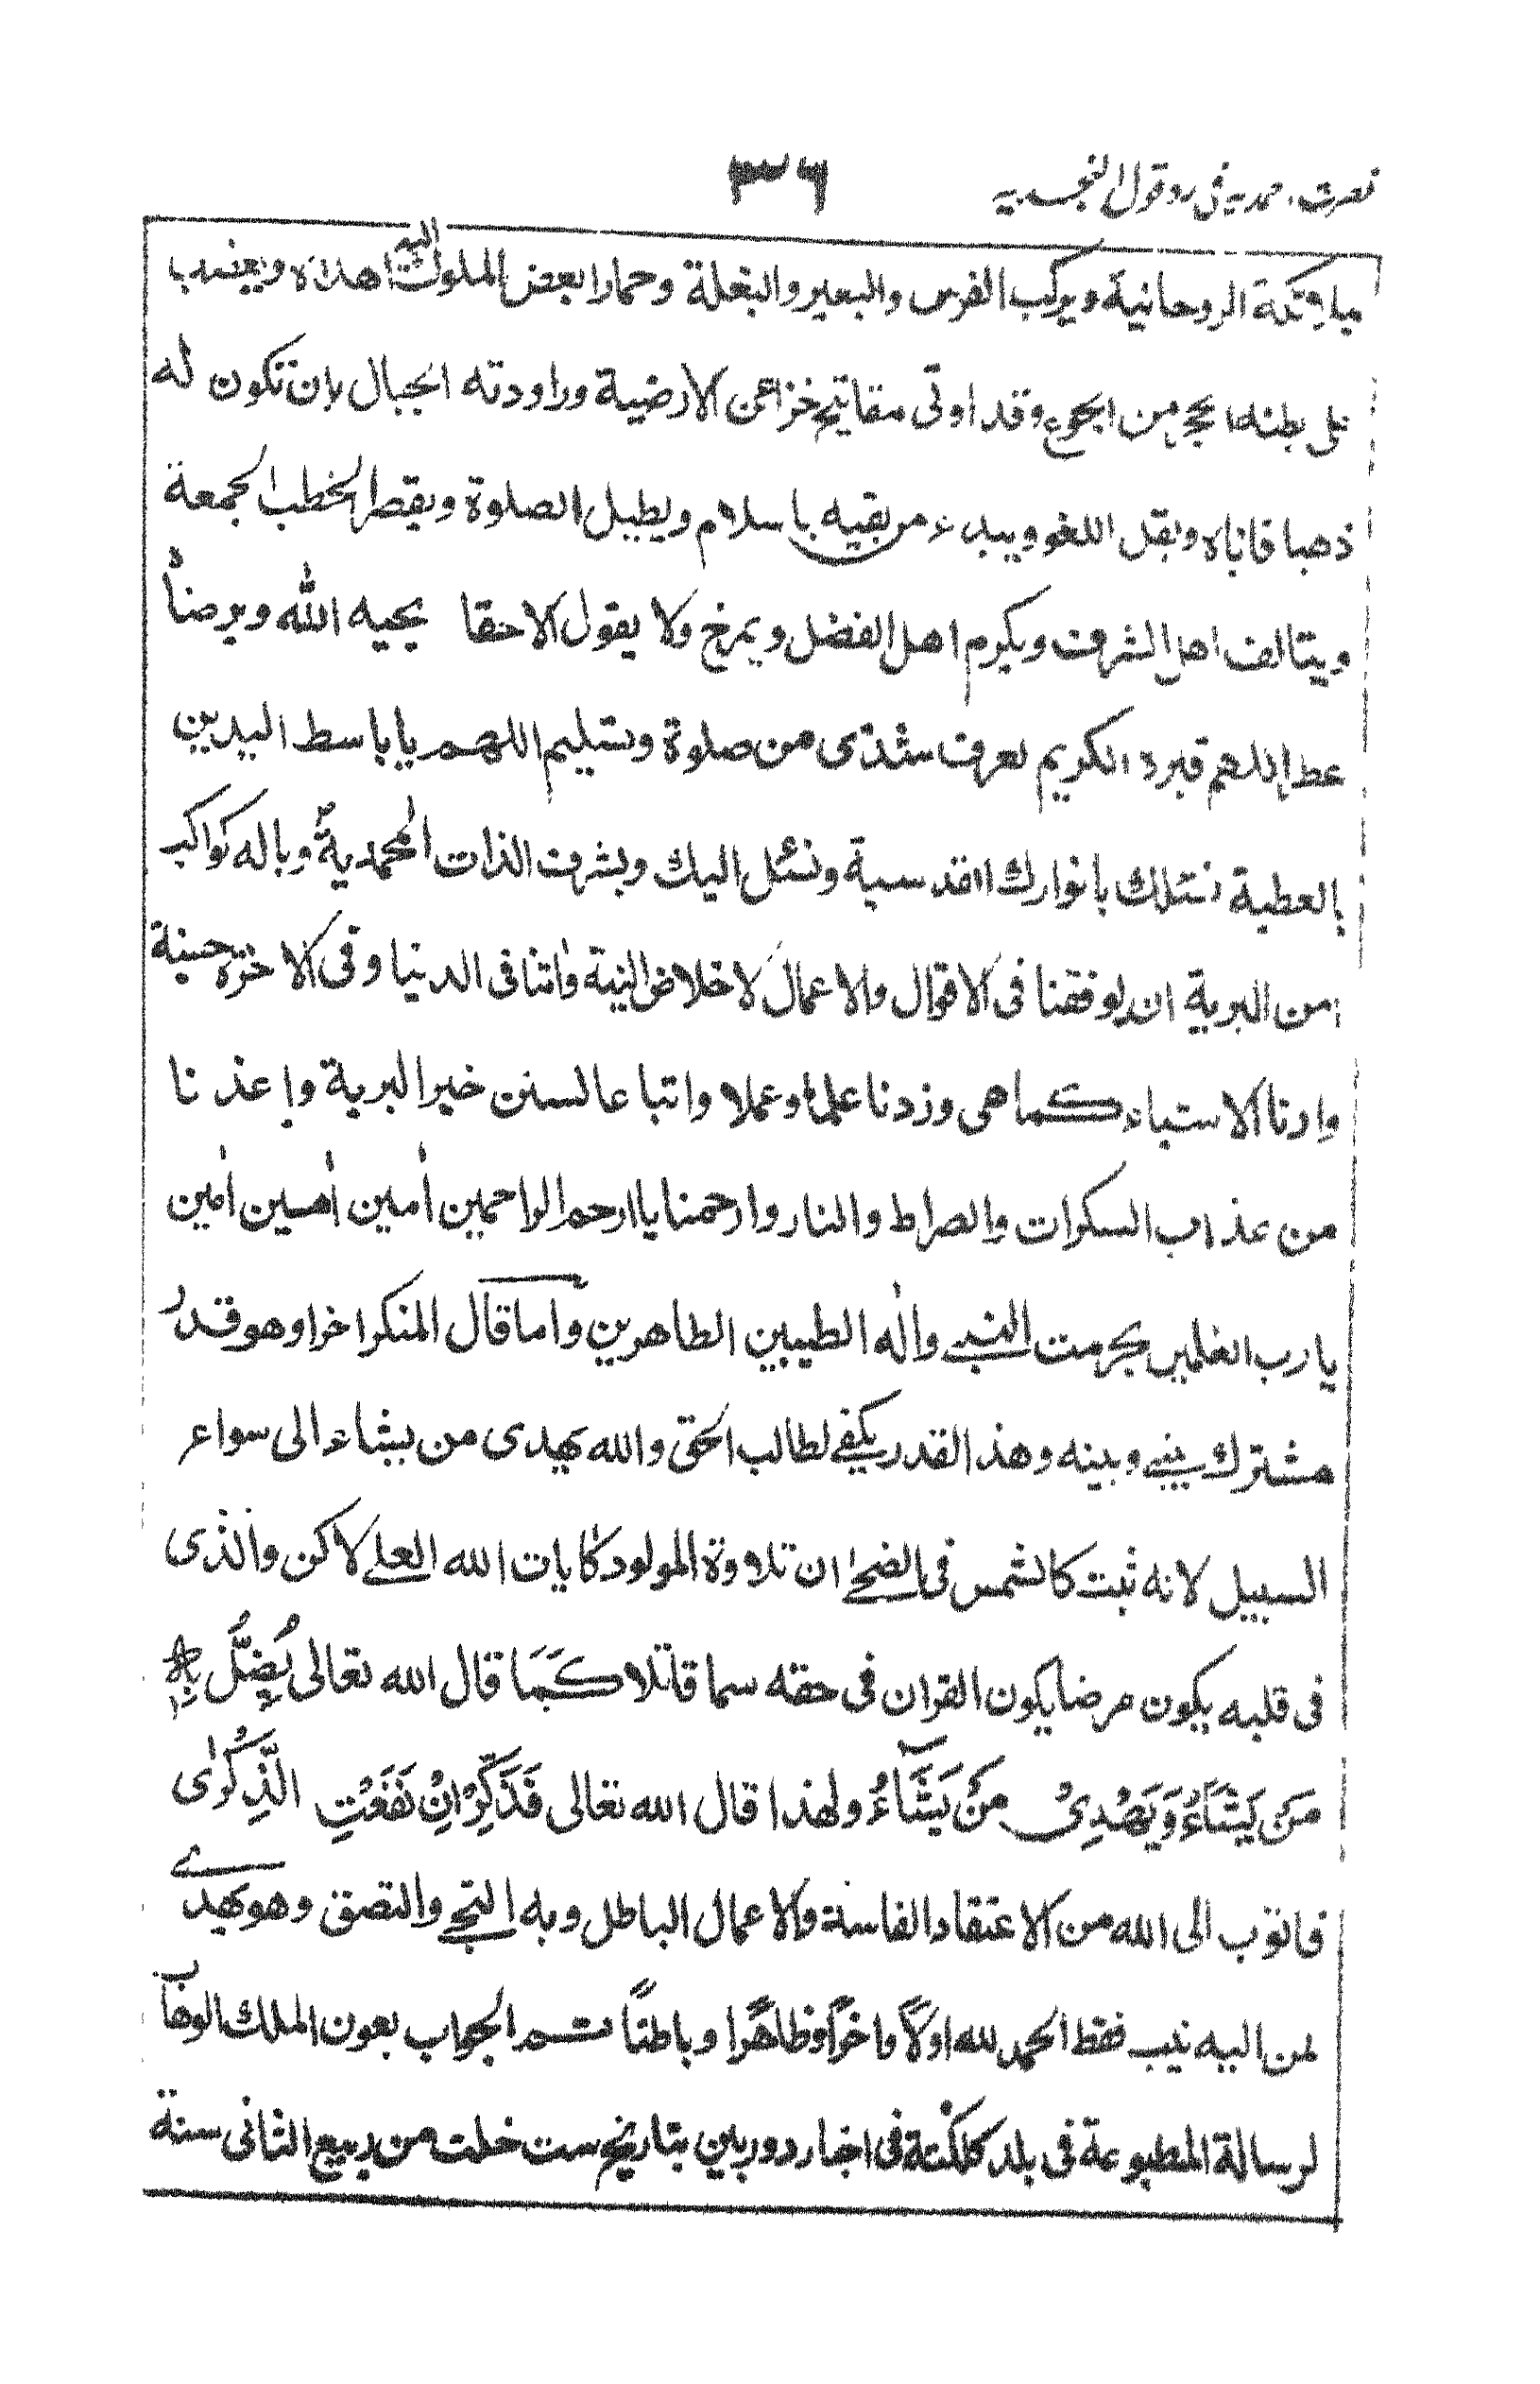 نصرت محمدیہ فی رد قول النجدیہ
۳۶
ملئكة الروحانية ويركب الفرس والبعير والبغلة وحمارا بعض الملوك اليه اهداه ويعصب
على بطنه الحجر من الجوع وقد اوتى مفاتيح خزائن الارضية وراودته الجبال بان تكون له
ذهبا فاباه ويقل اللغو ويبدء من بقيه با سلام ويطيل الصلوة ويقصر الخطب الجمعة
ويتالف اهل الشرف ويكرم اهل الفضل ويمزح ولا يقول الا حقا يحبه الله ويرضاه
عطر اللهم قبره الكريم بعرف شذى من صلوة وتسليم اللهم يا باسط اليدين
بالعطية نسئلك بانوارك القدسية ونسئل اليك وبشرف الذات المحمدية وباله كواكب
امن البرية ان توفقنا فى الاقوال والاعمال لاخلاص النية واتنا فى الدنيا وفى الاخرة حسنة
وارنا الاشياء كما هى وزدنا علما وعملا واتباعا لسنن خير البرية واعذنا
من عذاب السكرات والصراط والنار وارحمنا يا ارحم الراحمين أمين أمين أمين
يارب العلمين بحرمت النبى واله الطيبين الطاهرين واما قال المنكر اخرا وهو قدر
مشترك بينى وبينه وهذ القدر يكفى لطالب الحق والله يهدى من يشاء الى سواء
السبيل لانه ثبت كالشمس فى الضحى ان تلاوة المولود كايات الله العلى لاكن والذى
فى قلبه يكون مرضا يكون القران فى حقه سما قاتلا كَمَا قال الله تعالى يُضِلُّ بِهٖ
مَنْ يَشَاءُ وَيَهْدِىْ مَنْ يَشَاءُ ولهذا قال الله تعالى فَذَكِّرْ اِنْ نَفَعَتِ الذِّكْرٰى
فاتوب الى الله من الاعتقاد الفاسدة والاعمال الباطل وبه التجى والتصق وهو يهدى
لمن اليه نيب فقط الحمد لله اولاً واخراً وظاهراً وباطناً تم الجواب بعون الملك الوهاب
لرسالة المطبوعة فى بلد كلكتة فى اخبار دوربين بتاريخ ست خلت من ربيع الثانى سنة